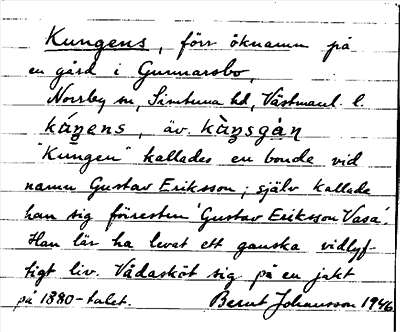 Kungens, förr öknamn på
en gård i Gunnarsbo,
Norrby sn, Simtuna hd, Västmanl. l.
"Kungen" kallades en bonde vid
namn Gustav Eriksson; själv kallade
han sig förresten 'Gustav Eriksson Vasa'.
Han lär ha levat ett ganska vidlyf-
tigt liv. Vådasköt sig på en jakt
på 1880-talet. Bernt Johansson 1946